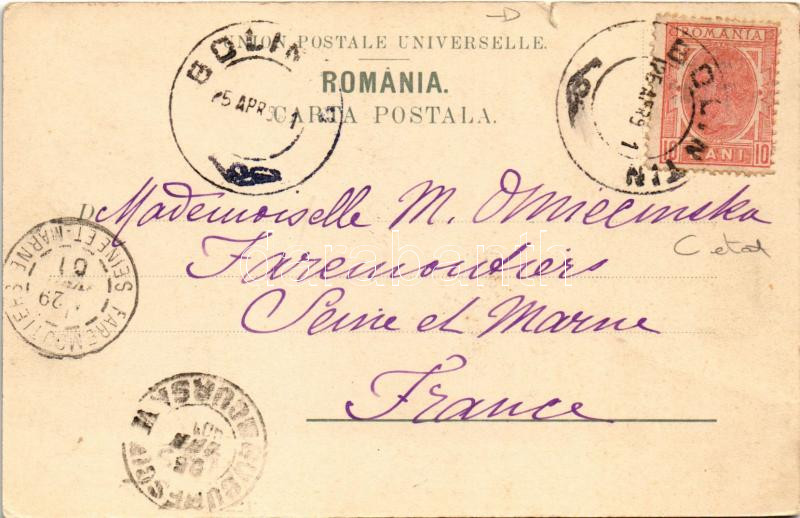 UNION POSTALE UNIVERSELLE.
ROMÂNIA.
CARTA POSTALA.
BOLIN
5 APR
1
BOLINTIN
APR 9 1
ROMANIA
10 BANI 10
D
Mademoiselle M.
Faremoutiers
Seine et Marne
France
C etat
FAREMOUTIERS
SEINE-ET-MARNE
29
01
CURSA VI
darabanth